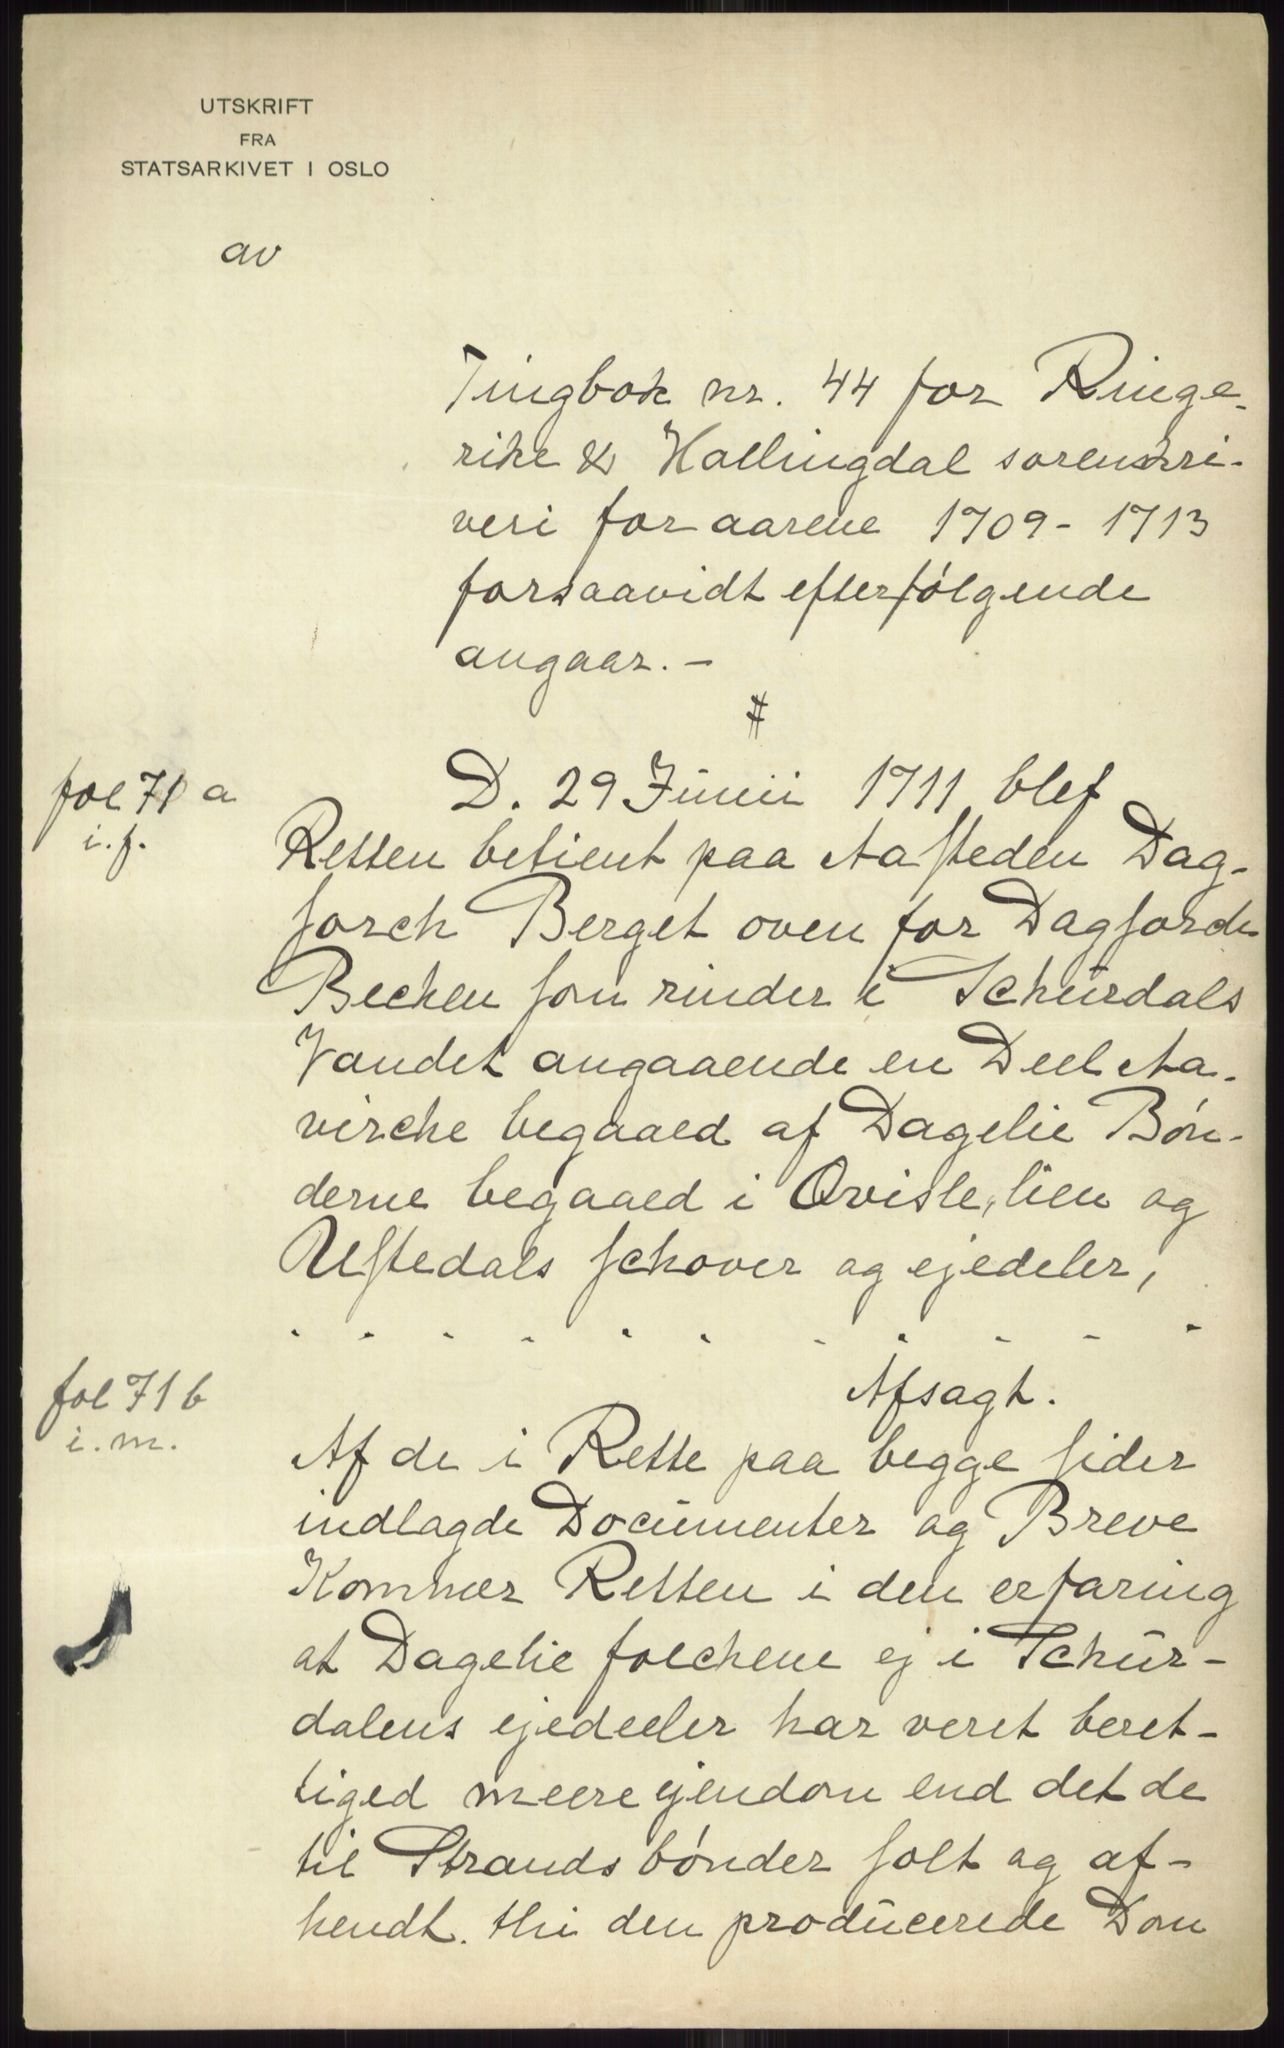 UTSKRIFT
FRA
STATSARKIVET I OSLO
av
Tingbok nr. 44 for Ringe-
rike & Hallingdal sorenskri-
veri for aarene 1709 - 1713
forsaavidt efterfølgende
angaar. -
#
fol 71 a
i. f.
D. 29 Junii 1711 blef
Retten betient paa Aasteden Dag-
sorch Berget oven for Dagsorch
Becken som rinder i Schurdals
Vandet angaaende en Deel Aa-
virche begaaed af Dagelie Bøn-
derne begaaed i Qvisle, lien og
Ustedals schover og ejedeler,
. . . . . . . . . . .
Afsagt.
fol 71 b
i. m.
Af de i Rette paa begge sider
indlagde Documenter og Breve
Kommer Retten i den erfaring
at Dagelie folchene ej i Schur-
dalens ejedeeler har veret beret-
tiged meere ejendom end det de
til Strands bønder solt og af-
hendt. thi den producerede Dom